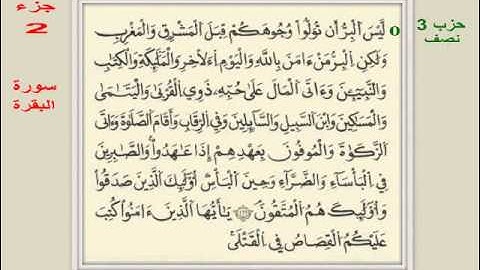 جزء
2
سورة
البقرة
حزب 3
نصف
لَّيْسَ ٱلْبِرُّ أَن تُوَلُّوا۟ وُجُوهَكُمْ قِبَلَ ٱلْمَشْرِقِ وَٱلْمَغْرِبِ
وَلَٰكِنِ ٱلْبِرُّ مَنْ ءَامَنَ بِٱللَّهِ وَٱلْيَوْمِ ٱلْأَخِرِ وَٱلْمَلَٰٓئِكَةِ وَٱلْكِتَٰبِ
وَٱلنَّبِيٓـِٔينَ وَءَاتَى ٱلْمَالَ عَلَىٰ حُبِّهِۦ ذَوِي ٱلْقُرْبَىٰ وَٱلْيَتَٰمَىٰ
وَٱلْمَسَٰكِينَ وَٱبْنَ ٱلسَّبِيلِ وَٱلسَّآئِلِينَ وَفِي ٱلرِّقَابِ وَأَقَامَ ٱلصَّلَوٰةَ وَءَاتَى
ٱلزَّكَوٰةَ وَٱلْمُوفُونَ بِعَهْدِهِمْ إِذَا عَٰهَدُوا۟ وَٱلصَّٰبِرِينَ
فِي ٱلْبَأْسَآءِ وَٱلضَّرَّآءِ وَحِينَ ٱلْبَأْسِ أُو۟لَٰٓئِكَ ٱلَّذِينَ صَدَقُوا۟
وَأُو۟لَٰٓئِكَ هُمُ ٱلْمُتَّقُونَ يَٰٓأَيُّهَا ٱلَّذِينَ ءَامَنُوا۟ كُتِبَ
عَلَيْكُمُ ٱلْقِصَاصُ فِي ٱلْقَتْلَى